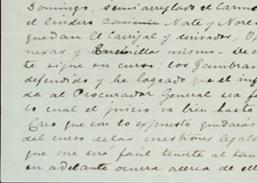 Domingo, semi arreglado el Carmen
el lindero Oariente Nate y Nore
quedan El Carrijal y derivados, O
nezas y mismo. De o
te sigue su curso; los Zambran
defendido y he logrado que el inf
da al Procurador General sea f
lo cual el juicio va bien hasta
Creo que con lo expuesto quedarás
del curso de las cuestiones legale
que me será fácil tenerte al tan
en adelante ocurra acerca de ell